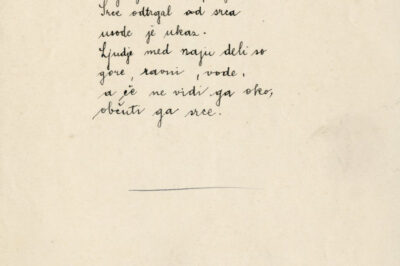 Srce odtrgal od srca
usode je ukas.
Ljudje med naju deli so
gore, ravni, vode,
a če ne vidi ga oko,
občuti ga srce.